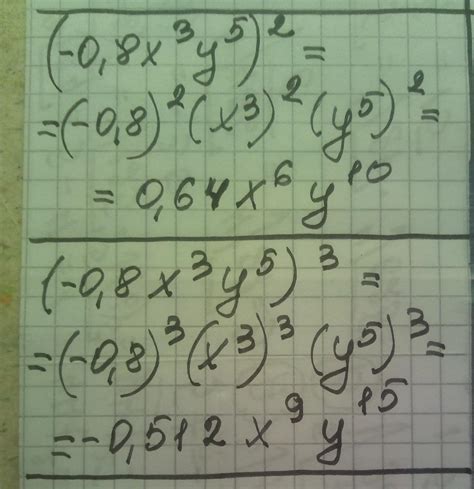 (-0,8x³y⁵)² =
=(-0,8)²(x³)²(y⁵)² =
= 0,64x⁶y¹⁰
(-0,8x³y⁵)³ =
=(-0,8)³(x³)³(y⁵)³ =
=-0,512x⁹y¹⁵